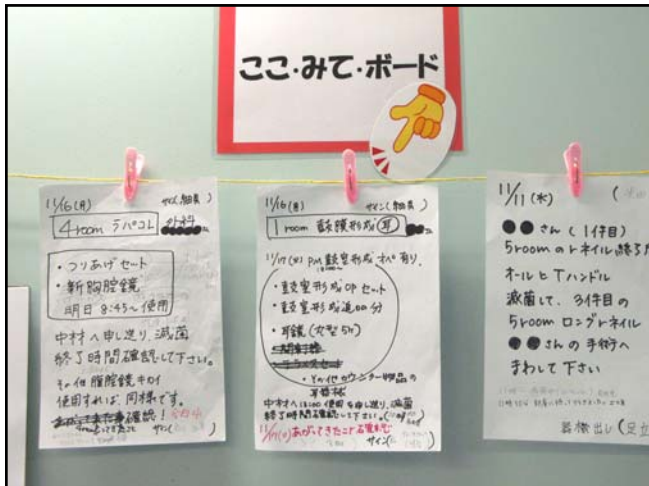 ここ・みて・ボード
11/16(月) サイン(細長)
4room ラパコレ 外科
・つりあげセット
・新胸腔鏡
明日 8:45~使用
中材へ申し送り、滅菌
終了時間確認して下さい。
その他腹腔鏡キカイ
使用すれば、同様です。
確認!
サイン( )
11/16(月) サイン(細長)
1room 鼓膜形成 耳
11/17(火) PM 鼓室形成 オペ有り、
・鼓室形成OPセット
・鼓室形成追加分
・耳鏡(丸型5ヶ)
・その他カウンター物品の
中材へ 使用を申し送り、滅菌
終了時間確認して下さい。
11/17(火)あがってきたこと確認
サイン( )
11/11(水)
●●さん(1件目)
5roomのトネイル終了
オールヒTハンドル
滅菌して、3件目の
5room ロングトネイル
●●さんの手術へ
まわして下さい
器械出し(足立